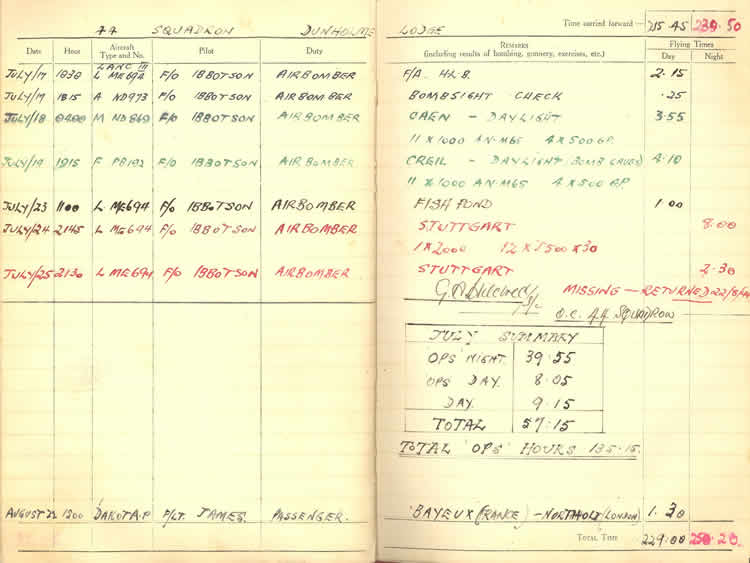 44 SQUADRON DUNHOLME LODGE Time carried forward:— 215.45 239.50
Date Hour Aircraft Type and No. Pilot Duty Remarks (including results of bombing, gunnery, exercises, etc.) Flying Times Day Night
LANC III
JULY/17 1030 L ME694 F/O IBBOTSON AIRBOMBER F/A H.L.B. 2.15
JULY/17 1815 A ND973 F/O IBBOTSON AIRBOMBER BOMBSIGHT CHECK .25
JULY/18 0400 M ND869 F/O IBBOTSON AIRBOMBER CAEN – DAYLIGHT 3.55
11 X 1000 AN-M65 4 X 500 GP.
JULY/19 1915 F PB192 F/O IBBOTSON AIRBOMBER CREIL – DAYLIGHT (BOMB CAVES) 4.10
11 X 1000 AN-M65 4 X 500 G.P.
JULY/23 1100 L ME694 F/O IBBOTSON AIRBOMBER FISH POND 1.00
JULY/24 2145 L ME694 F/O IBBOTSON AIRBOMBER STUTTGART 8.00
1 X 2000 12 X 500 X 30
JULY/25 2130 L ME694 F/O IBBOTSON AIRBOMBER STUTTGART 2.30
MISSING – RETURNED 22/8/44
O.C. 44 SQUADRON
JULY SUMMARY
'OPS' NIGHT. 39.55
'OPS DAY. 8.05
DAY. 9.15
TOTAL 57.15
TOTAL 'OPS' HOURS 135.15.
AUGUST 22 1300 DAKOTA.P F/LT. JAMES. PASSENGER. BAYEUX (FRANCE) – NORTHOLT (LONDON) 1.30
TOTAL TIME 229.00 250.20